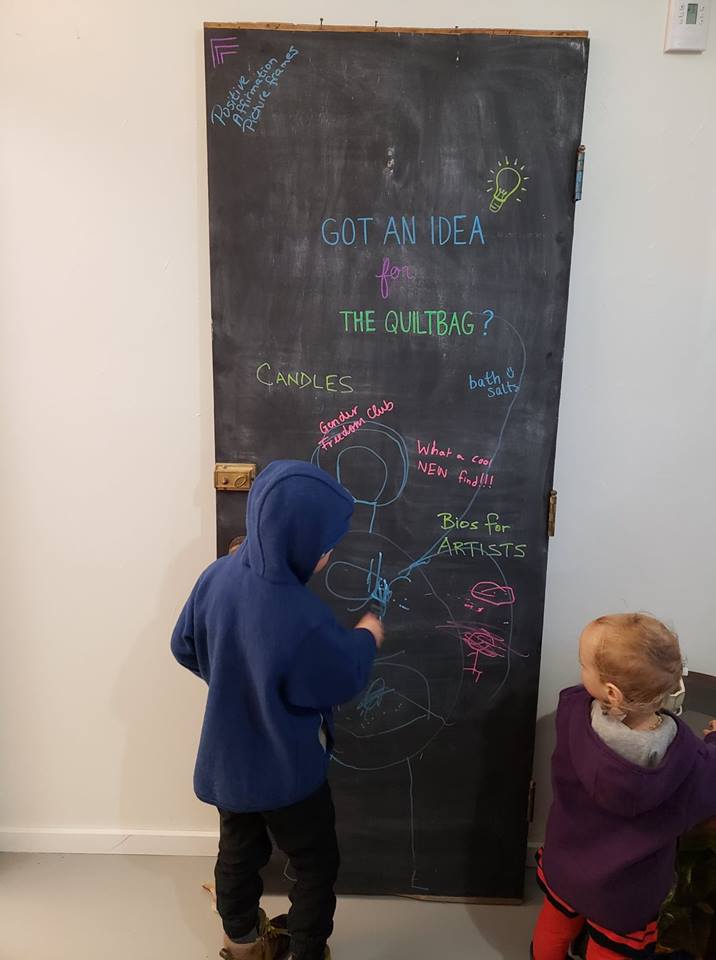 Positive
Affirmation
Picture frames
GOT AN IDEA
for
THE QUILTBAG?
CANDLES
bath
salts
Gender
Freedom Club
What a cool
NEW find!!!
Bios for
ARTISTS